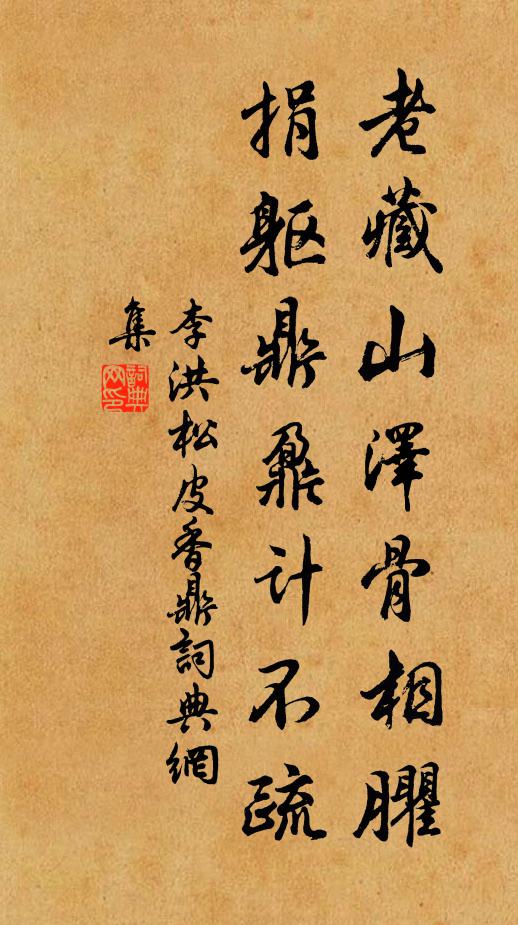 老藏山澤骨相臞
捐軀鼎鼐計不疏
李洪松皮香鼎詞典網
集
詞典網印